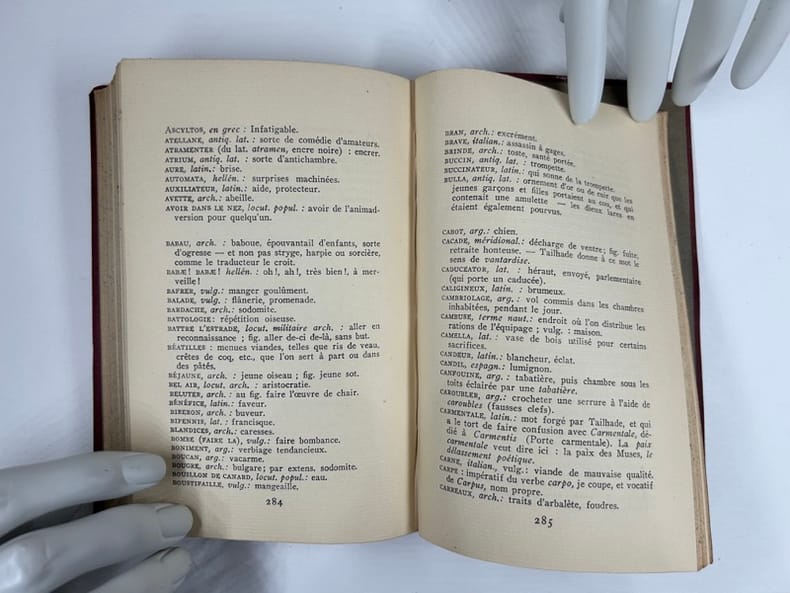 ASCYLTOS, en grec : Infatigable.
ATELLANE, antiq. lat. : sorte de comédie d'amateurs.
ATRAMENTER (du lat. atramen, encre noire) : encrer.
ATRIUM, antiq. lat. : sorte d'antichambre.
AURE, latin.: brise.
AUTOMATA, hellén. : surprises machinées.
AUXILIATEUR, latin.: aide, protecteur.
AVETTE, arch.: abeille.
AVOIR DANS LE NEZ, locut. popul. : avoir de l'animad-
version pour quelqu'un.
BABAU, arch. : baboue, épouvantail d'enfants, sorte
d'ogresse — et non pas stryge, harpie ou sorcière,
comme le traducteur le croit.
BABÆ! BABÆ! hellén. : oh!, ah!, très bien!, à mer-
veille!
BAFRER, vulg.: manger goulûment.
BALADE, vulg.: flânerie, promenade.
BARDACHE, arch.: sodomite.
BATTOLOGIE: répétition oiseuse.
BATTRE L'ESTRADE, locut. militaire arch. : aller en
reconnaissance ; fig. aller de-ci de-là, sans but.
BÉATILLES : menues viandes, telles que ris de veau,
crêtes de coq, etc., que l'on sert à part ou dans
des pâtés.
BÉJAUNE, arch. : jeune oiseau ; fig. jeune sot.
BEL AIR, locut. arch. : aristocratie.
BELUTER, arch.: au fig. faire l'œuvre de chair.
BÉNÉFICE, latin.: faveur.
BIBERON, arch.: buveur.
BIPENNIS, lat : francisque.
BLANDICES, arch.: caresses.
BOMBE (FAIRE LA), vulg.: faire bombance.
BONIMENT, arg.: verbiage tendancieux.
BOUCAN, arg.: vacarme.
BOUGRE, arch.: bulgare; par extens. sodomite.
BOUILLON DE CANARD, locut. popul.: eau.
BOUSTIFAILLE, vulg.: mangeaille.
284
BRAN, arch.: excrément.
BRAVE, italian.: assassin à gages.
BRINDE, arch.: toste, santé portée.
BUCCIN, antiq. lat. : trompette.
BUCCINATEUR, latin.: qui sonne de la trompette.
BULLA, antiq. lat. : ornement d'or ou de cuir que les
jeunes garçons et filles portaient au cou, et qui
contenait une amulette — les dieux lares en
étaient également pourvus.
CABOT, arg.: chien.
CACADE, méridional.: décharge de ventre; fig. fuite,
retraite honteuse. — Tailhade donne à ce mot le
sens de vantardise.
CADUCEATOR, lat. : héraut, envoyé, parlementaire
(qui porte un caducée).
CALIGINEUX, latin. : brumeux.
CAMBRIOLAGE, arg. : vol commis dans les chambres
inhabitées, pendant le jour.
CAMBUSE, terme naut.: endroit où l'on distribue les
rations de l'équipage ; vulg. : maison.
CAMELLA, lat : vase de bois utilisé pour certains
sacrifices.
CANDEUR, latin.: blancheur, éclat.
CANDIL, espagn.: lumignon.
CANFOUINE, arg.: tabatière, puis chambre sous les
toits éclairée par une tabatière.
CAROUBLER, arg.: crocheter une serrure à l'aide de
caroubles (fausses clefs).
CARMENTALE, latin.: mot forgé par Tailhade, et qui
a le tort de faire confusion avec Carmentale, dé-
dié à Carmentis (Porte carmentale). La paix
carmentale veut dire ici : la paix des Muses, le
délassement poétique.
CARNE, italian., vulg.: viande de mauvaise qualité.
CARPE : impératif du verbe carpo, je coupe, et vocatif
de Carpus, nom propre.
CARREAUX, arch.: traits d'arbalète, foudres.
285